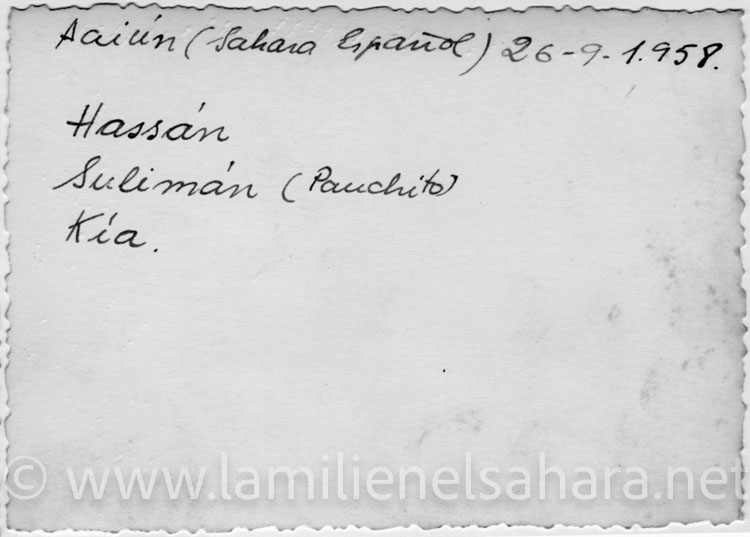 Aaiún (Sahara Español) 26-9-1.958.
Hassán
Sulimán (Panchito)
Kía.
© www.lamilienelsahara.net